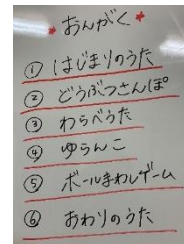 * おんがく *
① はじまりのうた
② どうぶつさんぽ
③ わらべうた
④ ゆらんこ
⑤ ボールまわしゲーム
⑥ おわりのうた